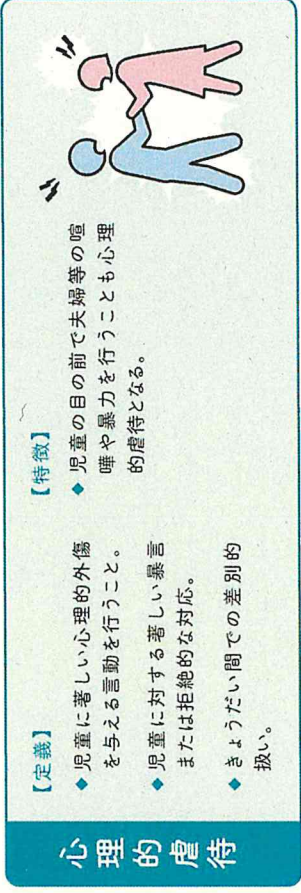 心理的虐待
【定義】
◆児童に著しい心理的外傷
を与える言動を行うこと。
◆児童に対する著しい暴言
または拒絶的な対応。
◆きょうだい間での差別的
扱い。
【特徴】
◆児童の目の前で夫婦等の喧
嘩や暴力を行うことも心理
的虐待となる。